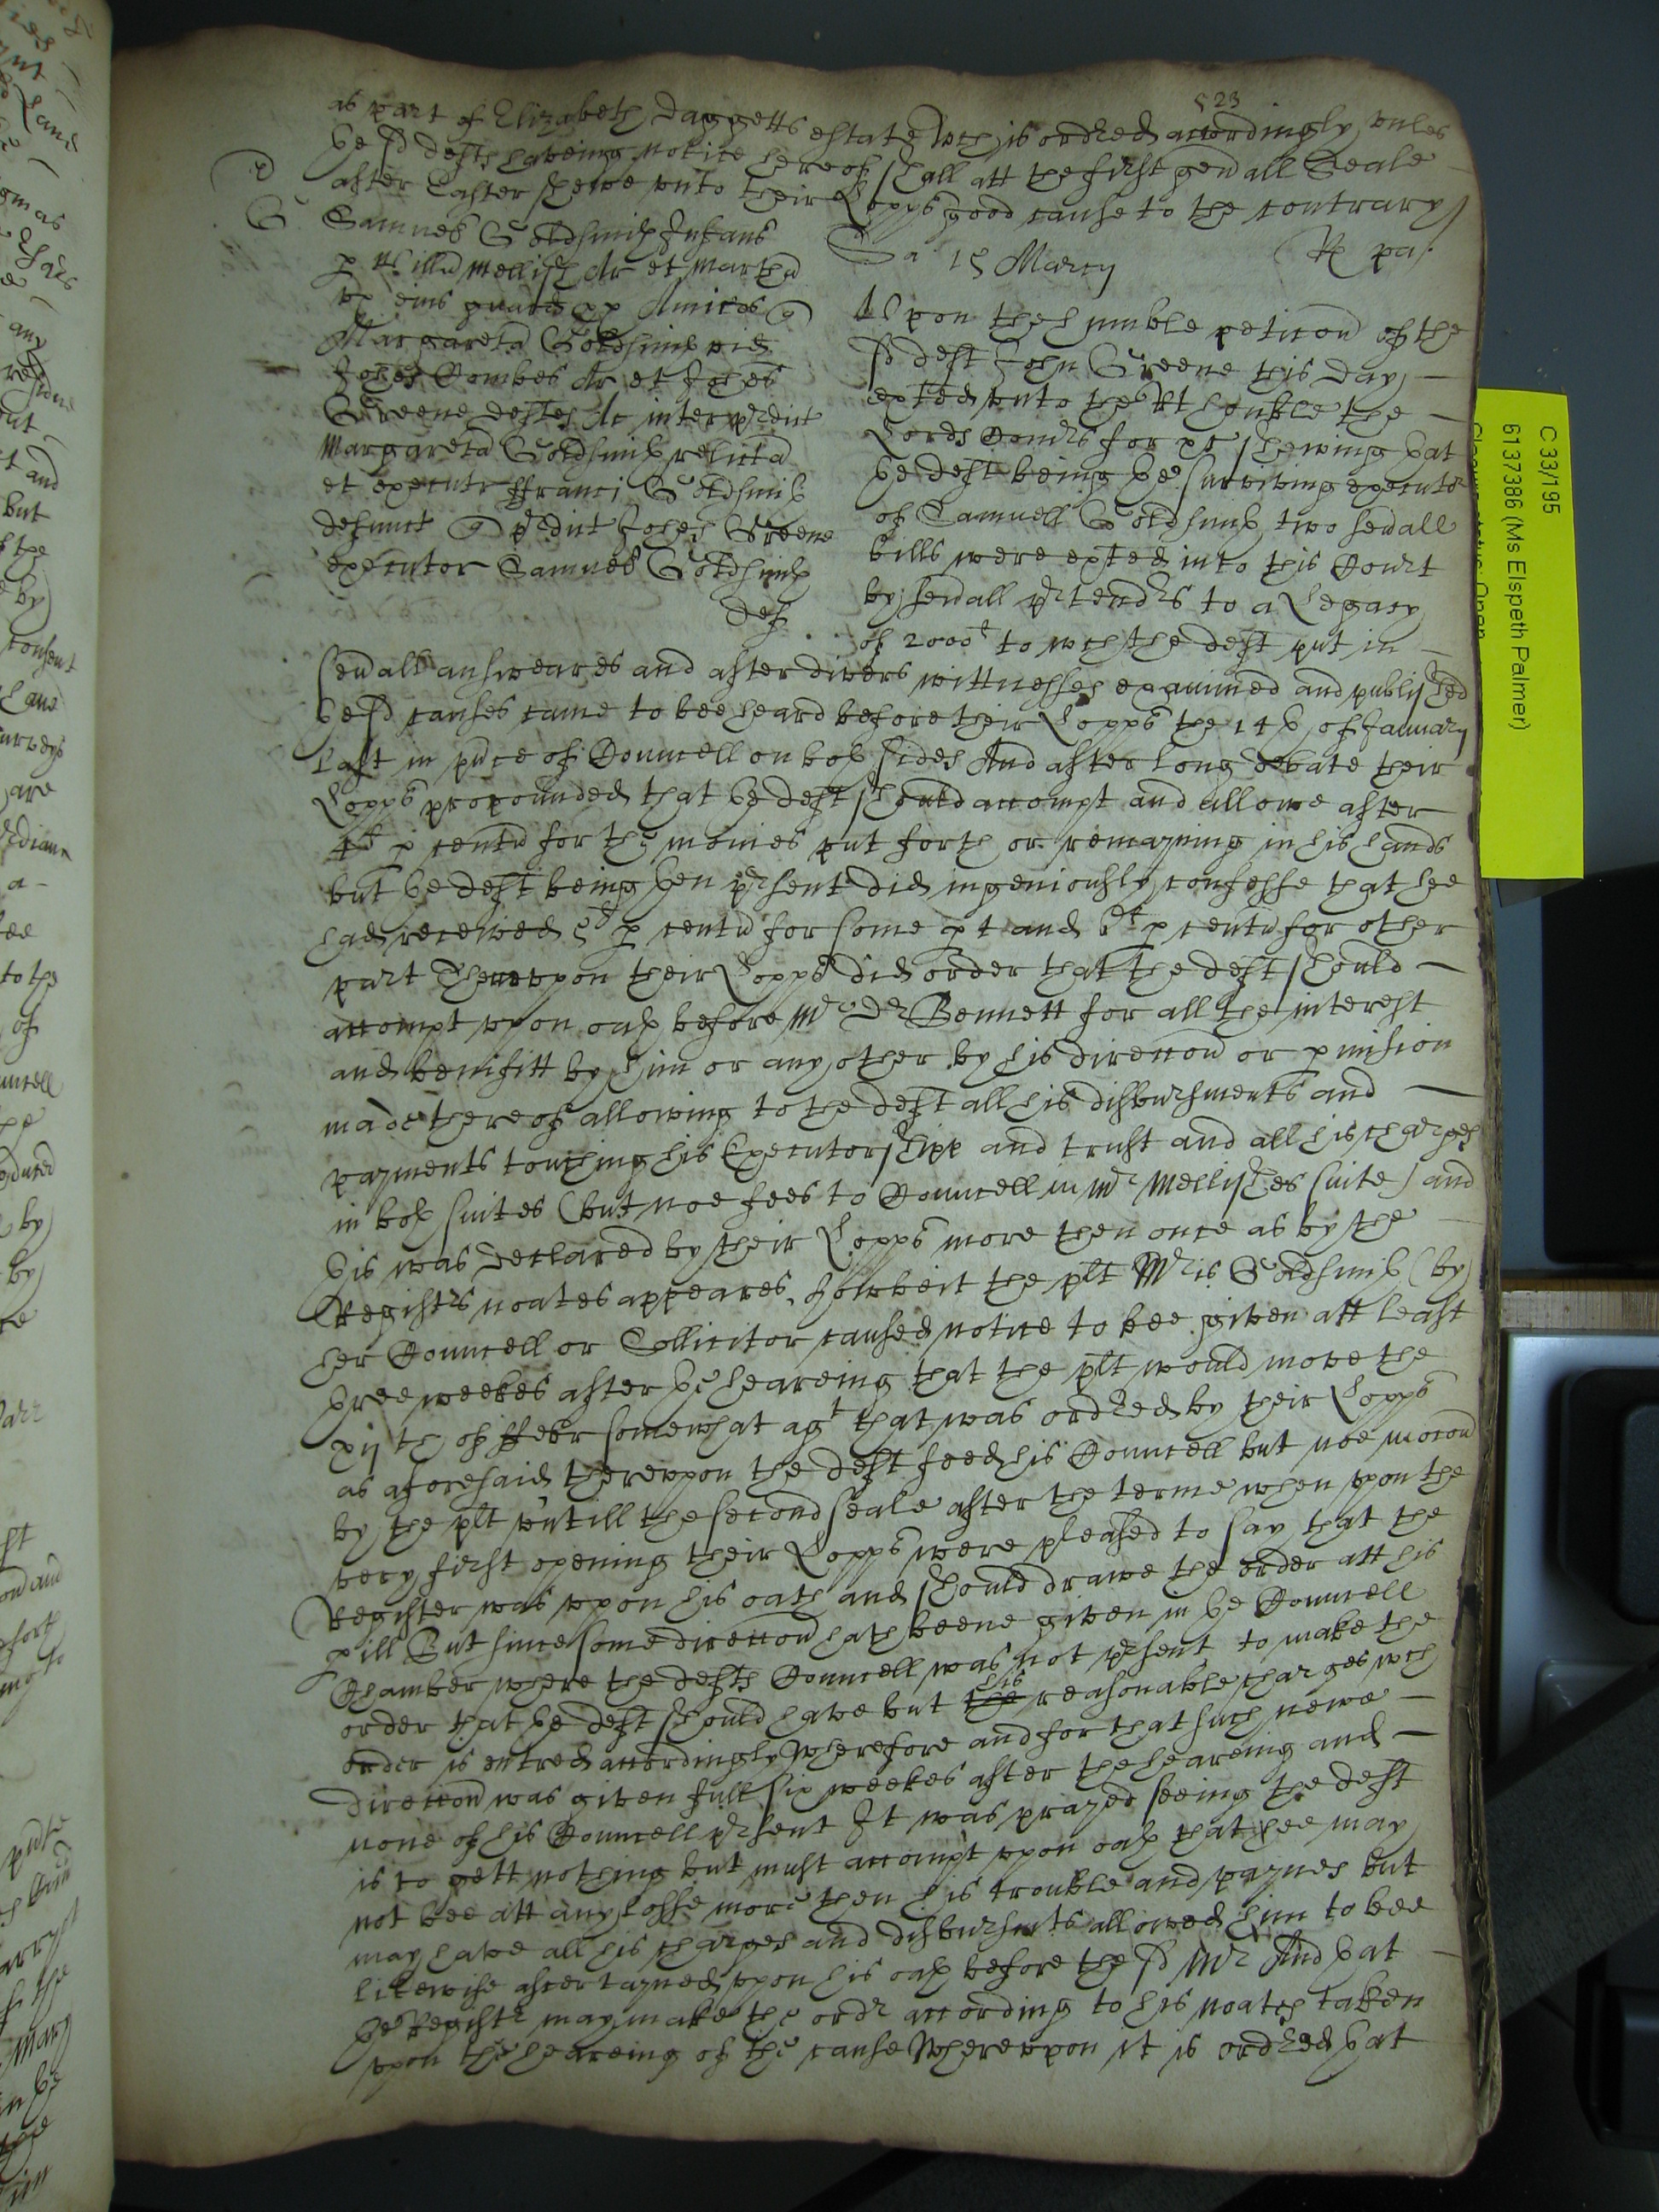 523
as part of Elizabeth Daggetts estate wch is ordred accordingly unles
ye sd defts haveing notice hereof shall att the first genall Seale
after Easter shewe unto their Lopps good cause to the contrary
Samuel Goldsmith Infans
p Willm Mellish Ar et Martha
ux eius guard
Margareta Goldsmith vid
Johes Combes Ar et Johes
Greene deftes Ac inter predict
Margareta Goldsmith relicta
et executr ffranci Goldsmith
defunct predict Johes Greene
executor Samuel Goldsmith
def
15 Marcij
Upon the humble peticon of the
sd deft John Greene this day
exhted unto the Rt honble the
Lords Comrs for shewing yat
ye deft being ye surviving executr
of Samuell Goldsmith two sevall
bills were exhted into this Court
by sevall pretendrs to a Legacy
of 2000l to wch the deft put in
sevall answeares and after divers wittnesses examined and published
ye sd causes came to bee heard before their Lopps the 14th of January
last in pnce of Councell on both sides And after long debate their
Lopps propounded that ye deft should accompt and allowe after
4l p centu for the monies put forth or remayning in his hands
but ye deft being then present did ingeniously confesse that hee
had received 5l p centu for some pt and 6l p centu for other
part Thereupon their Lopps did order that the deft should
accompt upon oath before Mr Dr Bennett for all the interest
and benifitt by him or any other by his direccon or pmision
made thereof allowing to the deft all his disbursments and
payments touching his Executorshipp and trust and all his charges
in both suites (but noe fees to Councell in Mr Mellishes suite) and
this was declared by their Lopps more then once as by the
Registrs noates appeares, howbeit the plt Mris Goldsmith (by
her Councell or Sollicitor caused notice to bee given att least
three weekes after ye heareing that the plt would move the
xijth of ffebr somewhat agt that was ordred by their Lopps
as aforesaid thereupon the deft feed his Councell but noe mocon
by the plt untill the second seale after the terme when upon the
very first opening their Lopps were pleased to say that the
Register was upon his oath and should drawe the order att his
pill But since some direccon hath beene given in ye Councell
Chamber where the defts Councell was not present to make the
order that ye deft should have but the his reasonable charges wch
order is entred accordingly Wherefore and for that such newe
direccon was given full six weekes after the heareing and
none of his Councell present It was prayed seeing the deft
is to gett nothing but must accompt upon oath that hee may
not bee att any losse more then his trouble and paynes but
may have all his charges and disbursmts allowed him to bee
likewise ascertayned upon his oath before the sd Mr And yat
ye Registr may make the ordr according to his noates taken
upon the heareing of the cause Whereupon it is ordred yat
C 33/195
6137386 (Ms Elspeth Palmer)